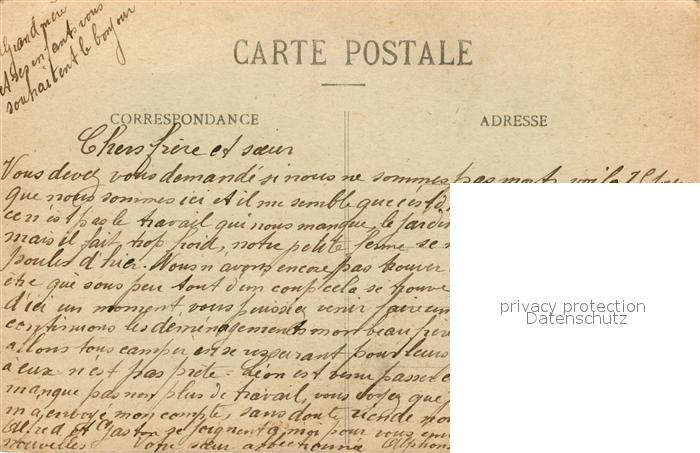 Grand père
et ses enfants vous
souhaitent le bonjour
CARTE POSTALE
CORRESPONDANCE
ADRESSE
Chers frère et sœur
Vous devez vous demandé si nous ne sommes pas morts, voila
que nous sommes ici et il me semble que c'est
ce n'est pas le travail qui nous manque, le jardin
mais il fait trop froid, notre petite ferme se
poules d'hier. Nous n'avons encore pas trouver
être que sous peu tout d'un coup cela se trouve
d'ici un moment vous puissiez venir faire un
continuons les déménagements mon beau père
allons tous camper en se resserant pour leurs
à eux n'est pas prete - Léon est venu passer
manque pas non plus de travail, vous voyez que
m'a envoyé mon compte, sans doute
Alfred et Gaston se joignent à moi pour vous
nouvelles Votre sœur affectionnée
privacy protection
Datenschutz